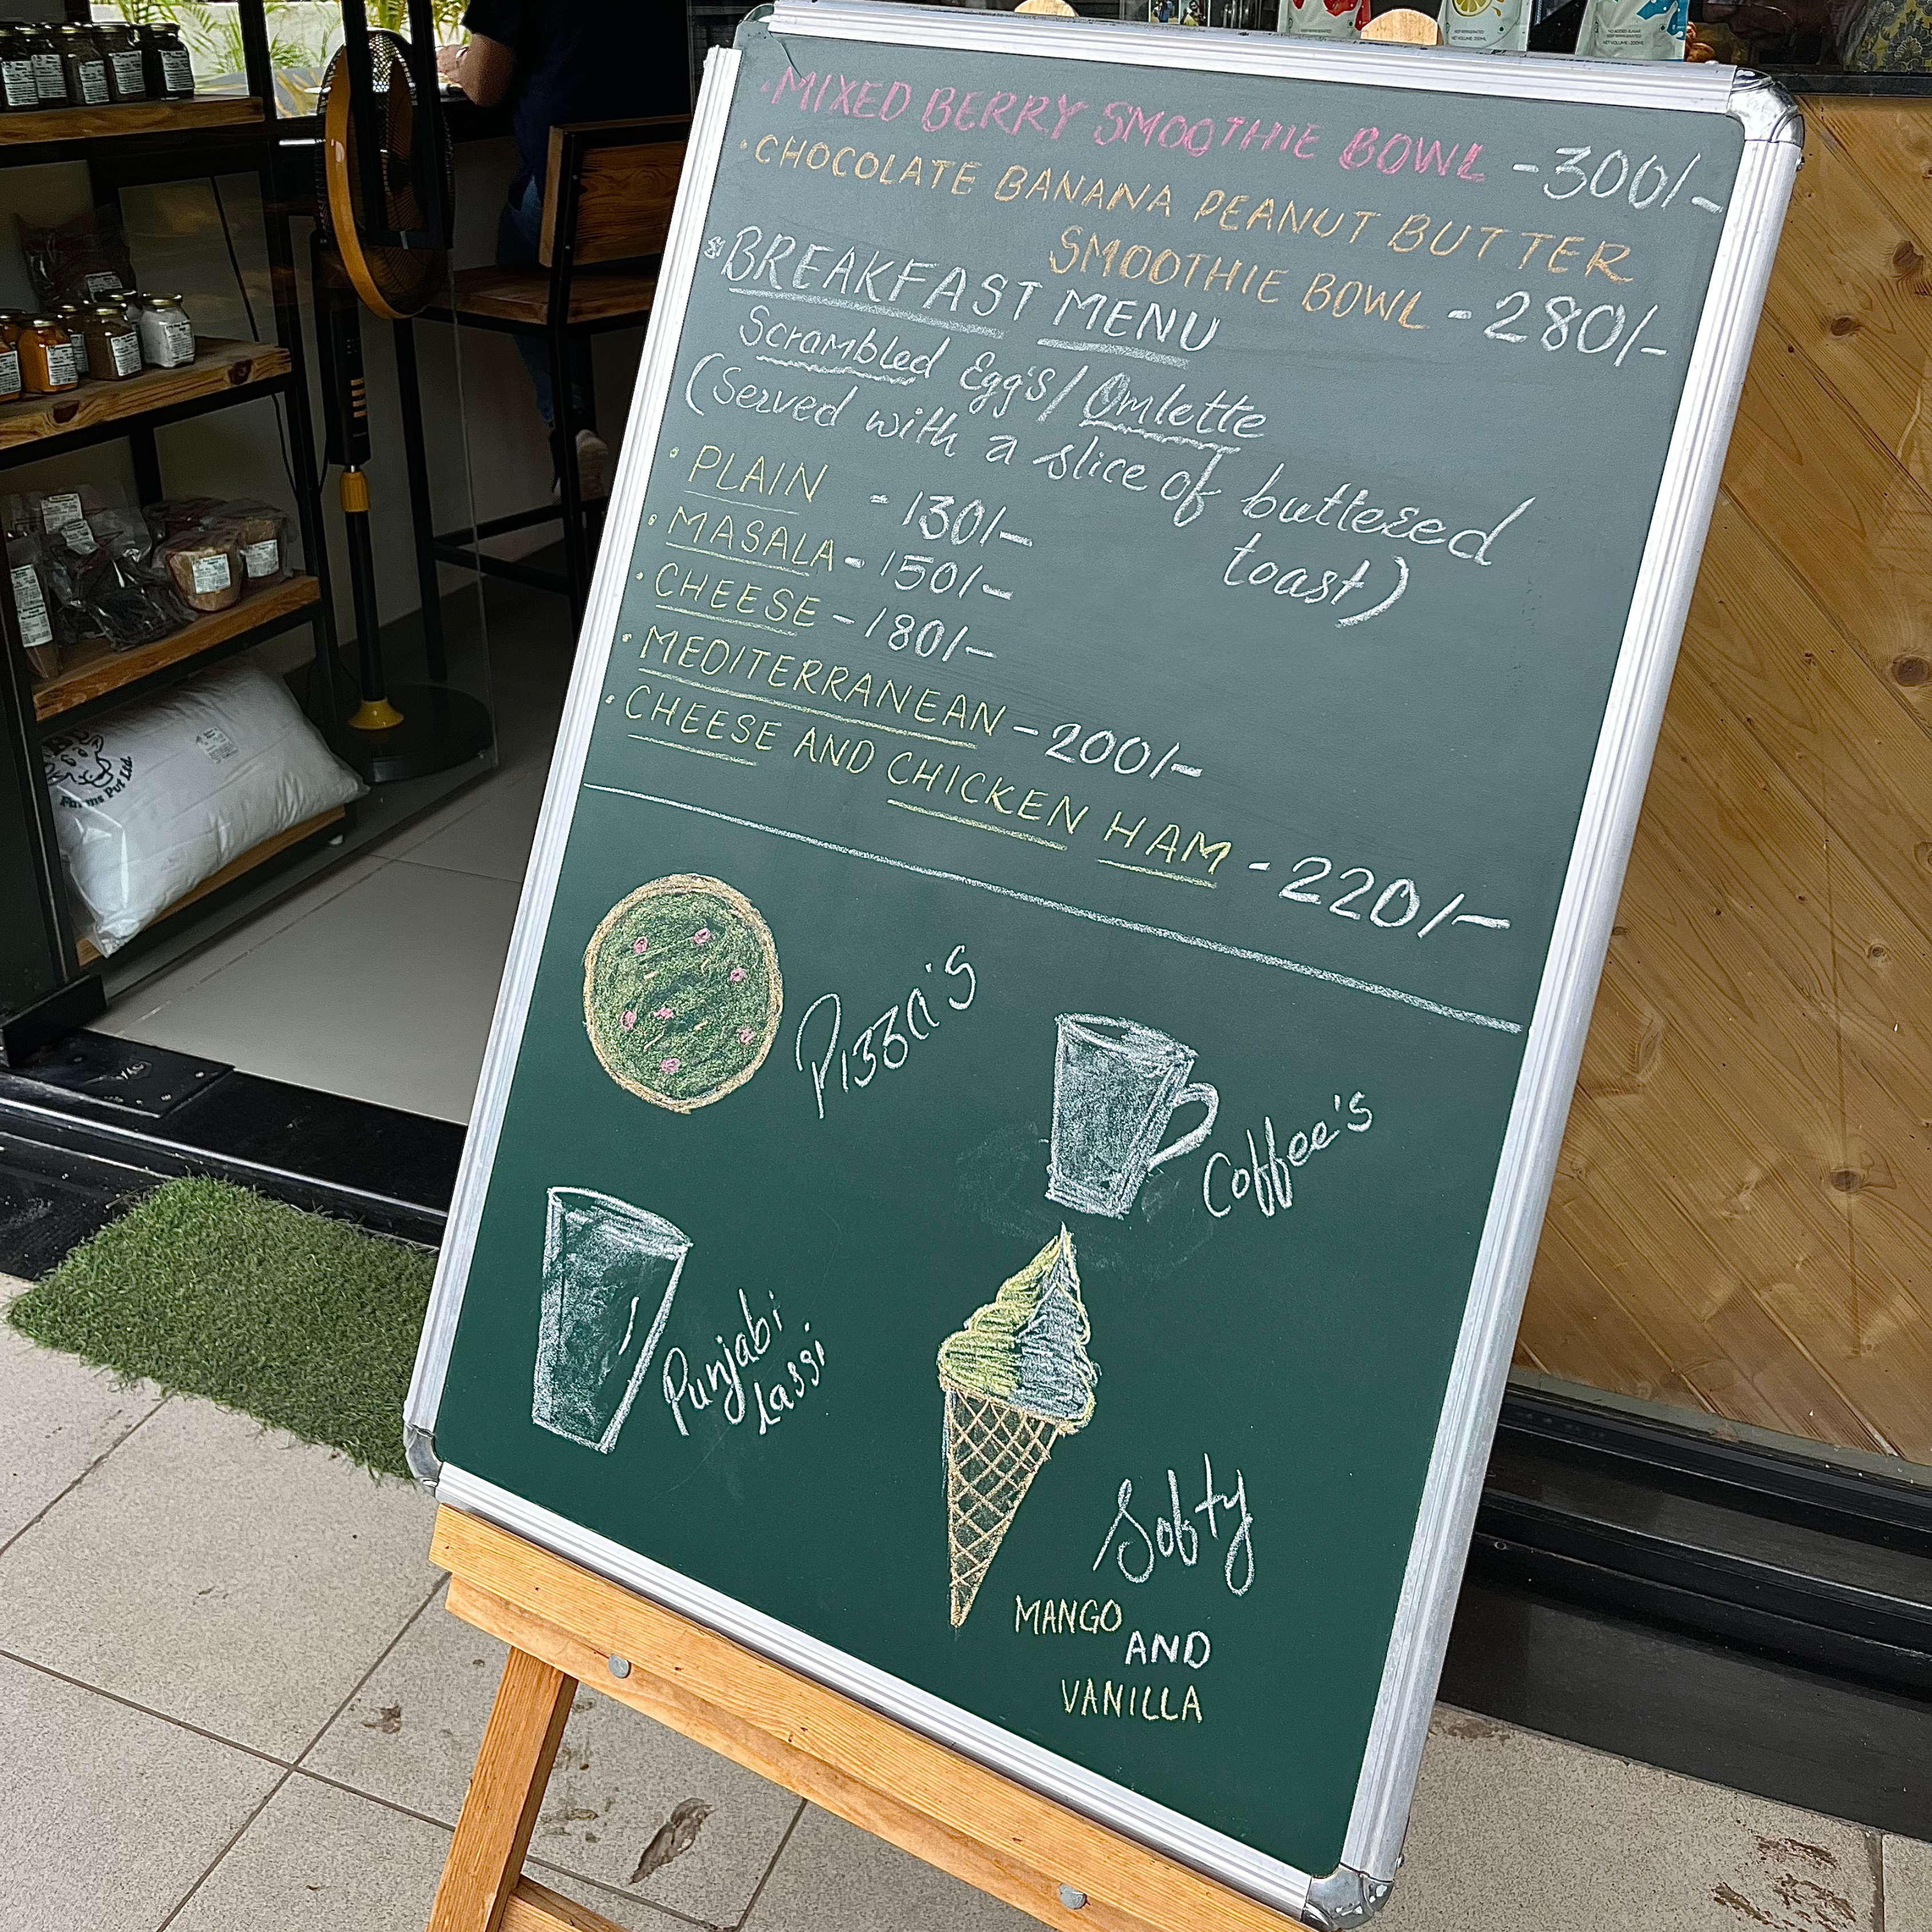 · MIXED BERRY SMOOTHIE BOWL - 300/-
· CHOCOLATE BANANA PEANUT BUTTER
SMOOTHIE BOWL - 280/-
* BREAKFAST MENU
Scrambled Egg's / Omlette
(Served with a slice of buttered
toast)
· PLAIN - 130/-
· MASALA - 150/-
· CHEESE - 180/-
· MEDITERRANEAN - 200/-
· CHEESE AND CHICKEN HAM - 220/-
Pizza's
Coffee's
Punjabi
Lassi
Softy
MANGO
AND
VANILLA
Farms Pvt Ltd